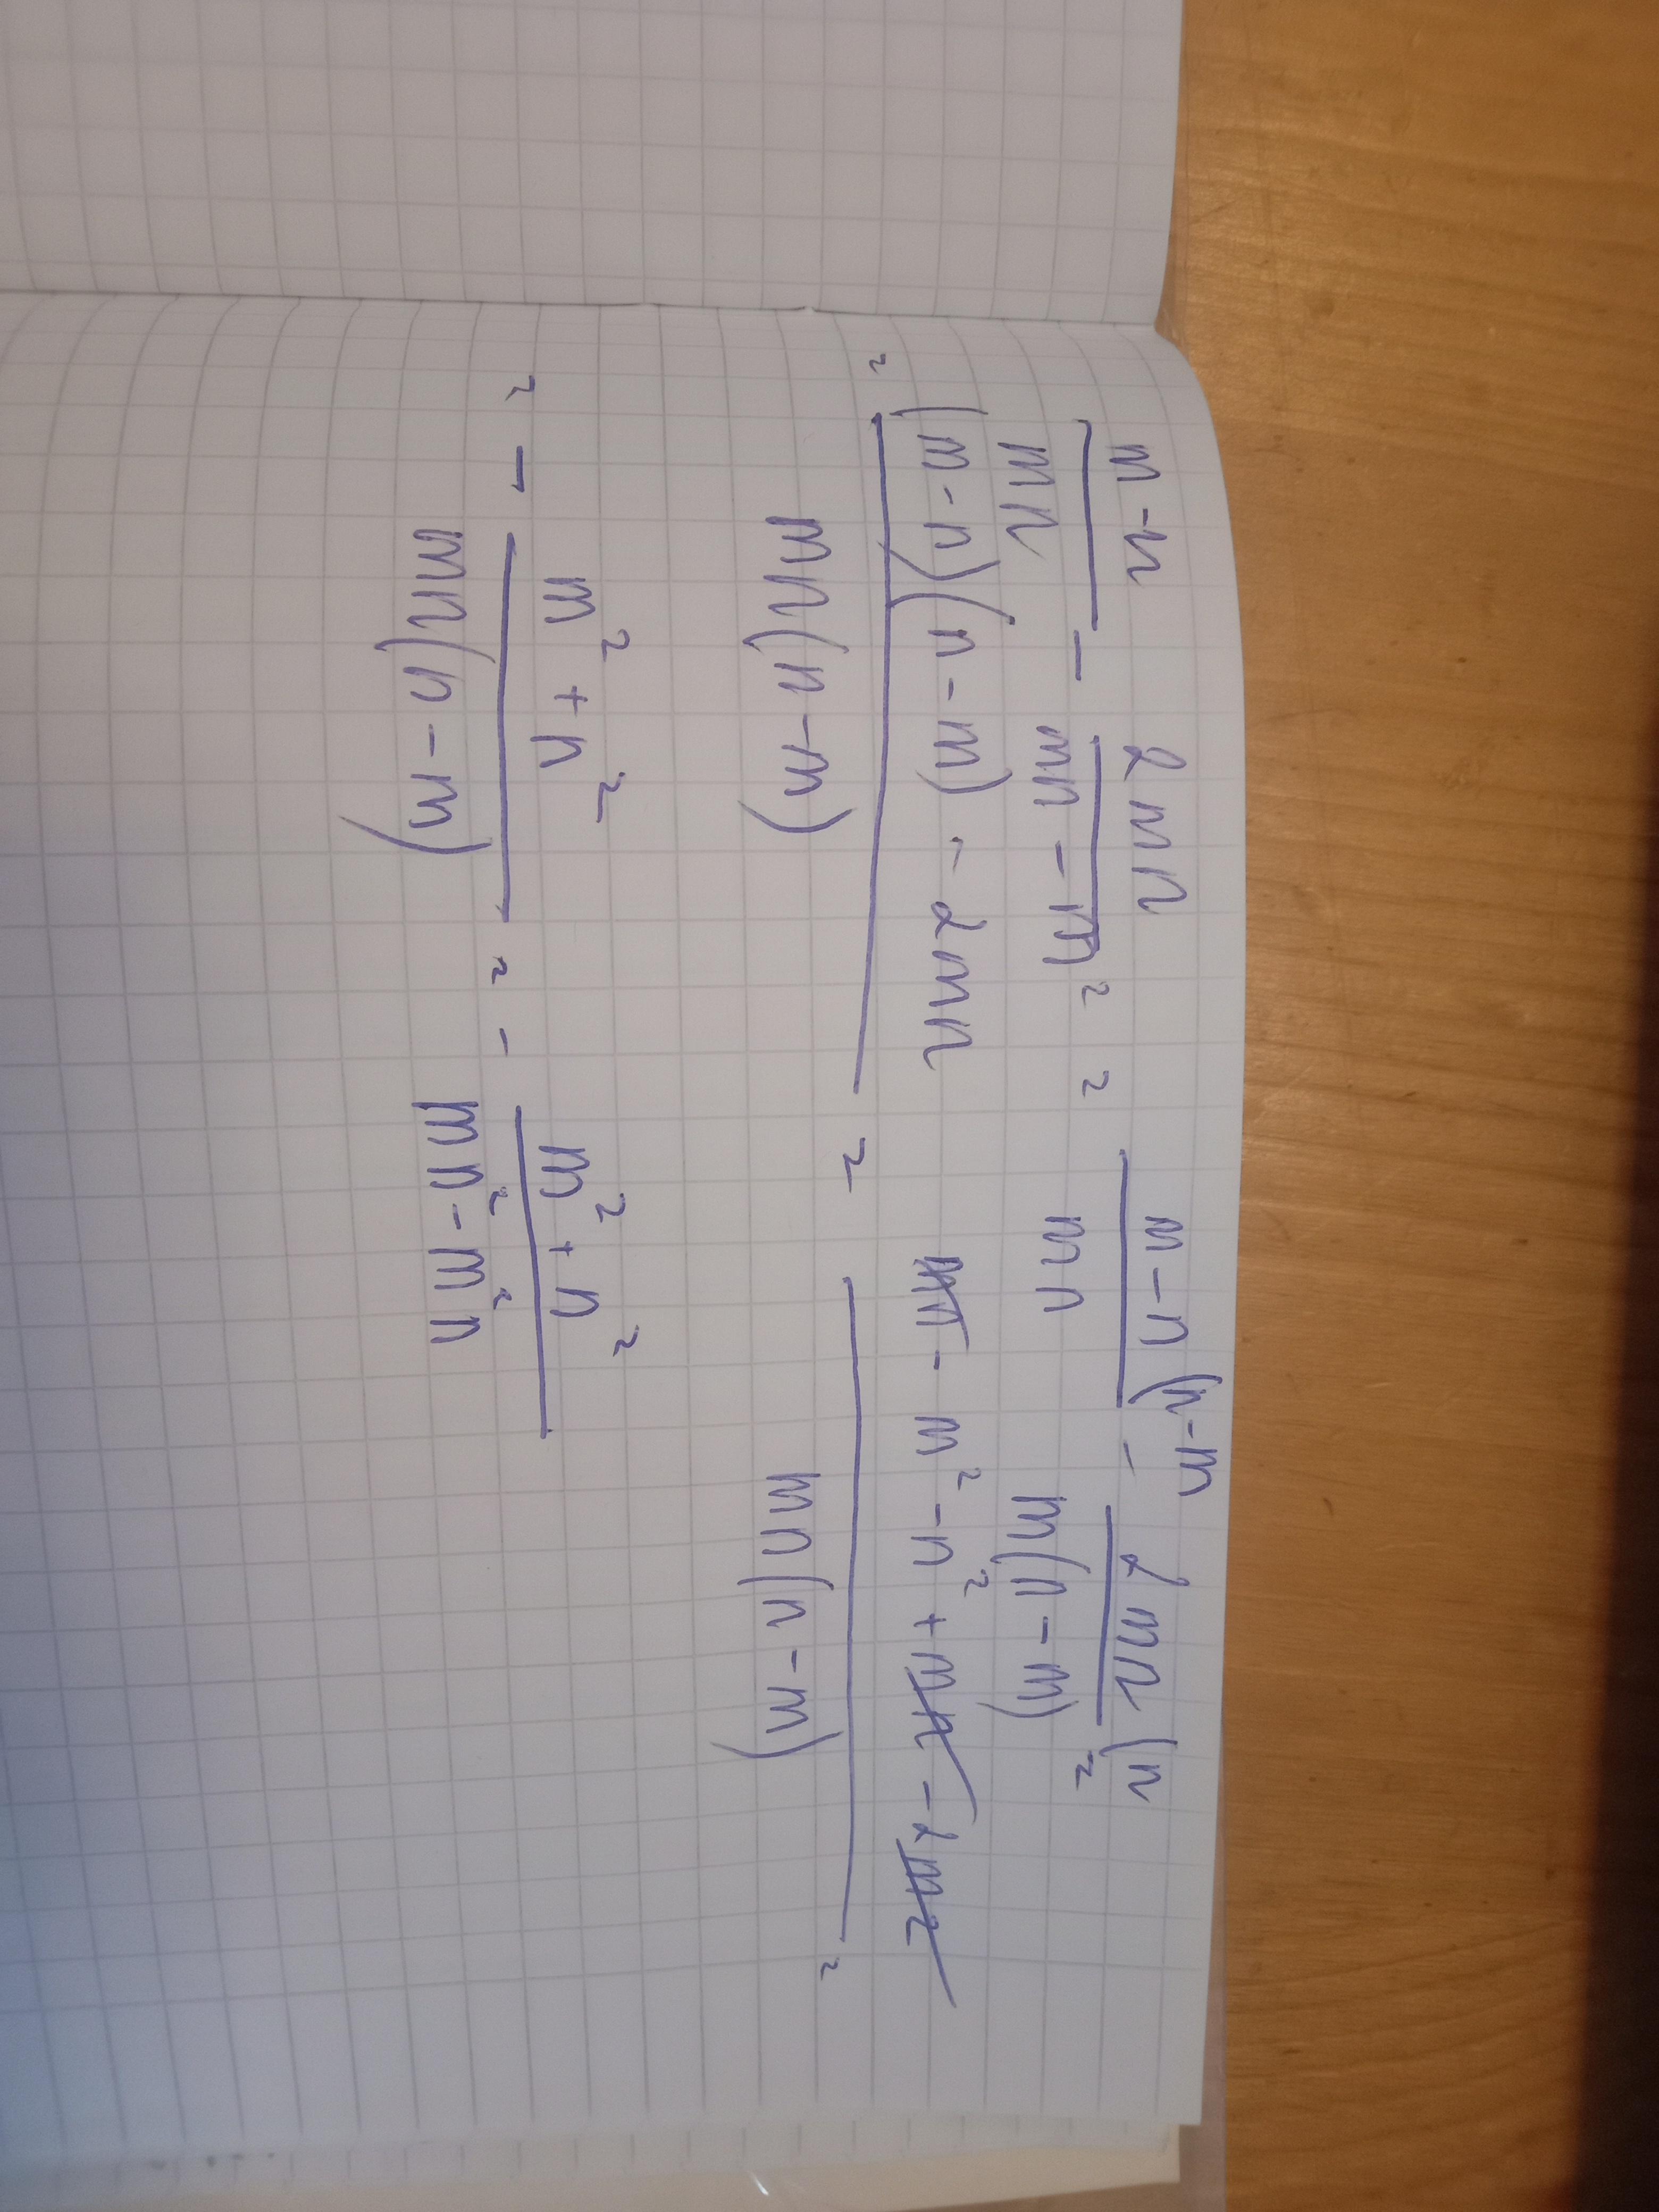 (m-n)/(mn) - (2mn)/(mn-m²) = (m-n)/(mn) (n-m - (2mn)/(m(n-m)) (n =
= ((m-n)(n-m) - 2mn)/(mn(n-m)) = (mn - m² - n² + mn - 2mn)/(mn(n-m)) =
= - (m² + n²)/(mn(n-m)) = - (m² + n²)/(mn² - m²n)